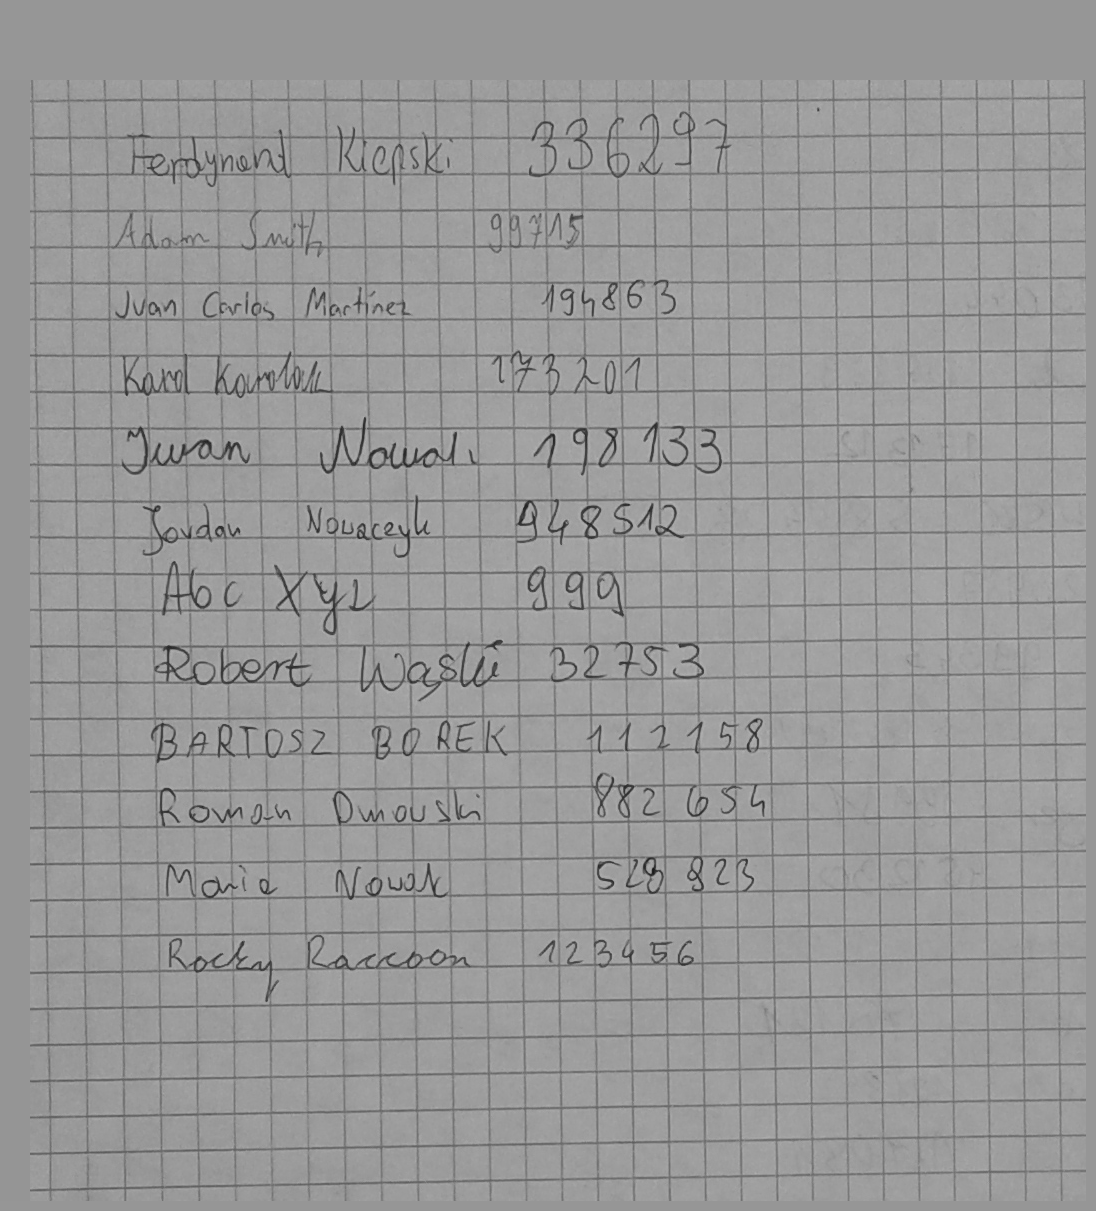 Ferdynand Kiepski 336297
Adam Smith 99715
Juan Carlos Martinez 194863
Karol Karolak 173201
Iwan Nowak 198133
Jordan Nowaczyk 948512
Abc Xyz 999
Robert Wąski 32753
BARTOSZ BOREK 112158
Roman Dmowski 882654
Maria Nowak 528923
Rocky Raccoon 123456